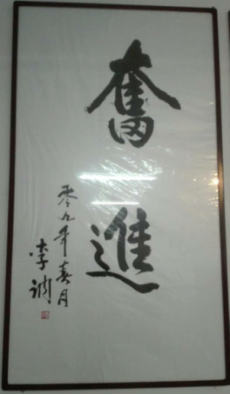 奮
進
零九年春月
李潤